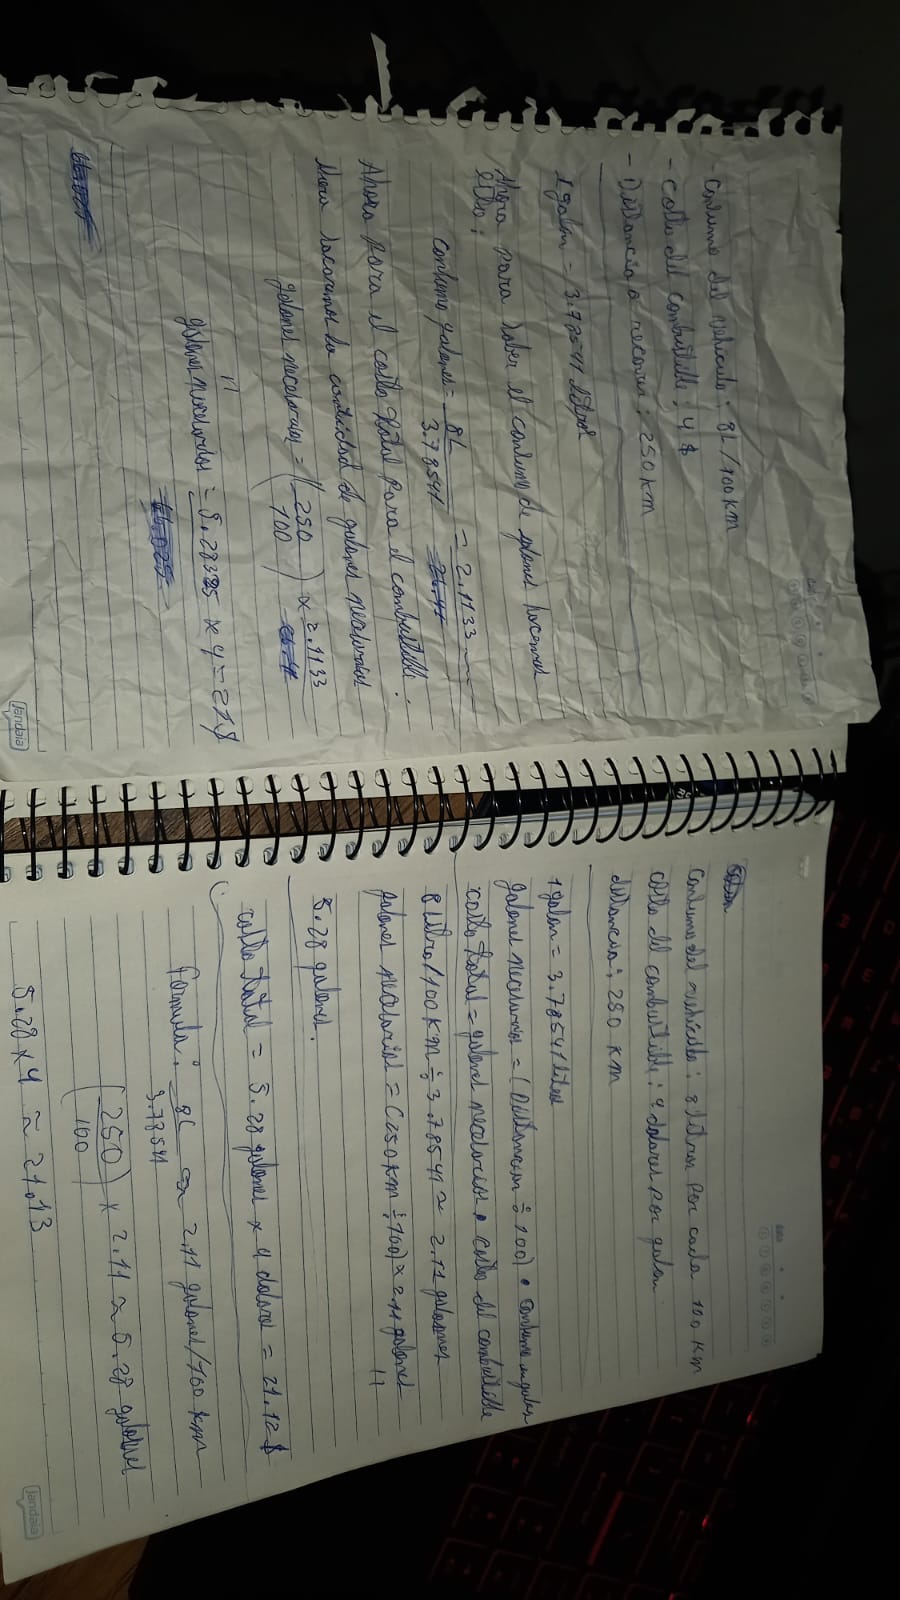 data
Consumo del vehiculo: 8L/100km
- costo del combustible: 4 $
- Distancia a recorrer: 250 km
1 galon = 3.78541 litros
Ahora para saber el consumo de galones hacemos
esto:
consumo galones = 8L / 3.78541 = 2.1133
Ahora para el costo total para el combustible.
Ahora sacaremos la cantidad de galones necesarios
galones necesarios = (250 / 100) × 2.1133
galones necesarios = 5.28325 × 4 = 21 $
Jandaia
data
Consumo del vehiculo: 8 litros por cada 100 km
costo del combustible: 4 dolares por galon
distancia: 250 km
1 galon = 3.78541 litros
galones necesarios = (Distancia ÷ 100) • consumo en galon
costo total = galones necesarios • costo del combustible
8 litros/100 km ÷ 3.78541 ≈ 2.11 galones
galones necesarios = (250 km ÷ 100) × 2.11 galones
5.28 galones.
costo total = 5.28 galones × 4 dolares = 21.12 $
Formula: 8L / 3.78541 ≈ 2.11 galones/100 km
(250 / 100) × 2.11 ≈ 5.28 galones
5.28 × 4 ≈ 21.13
Jandaia